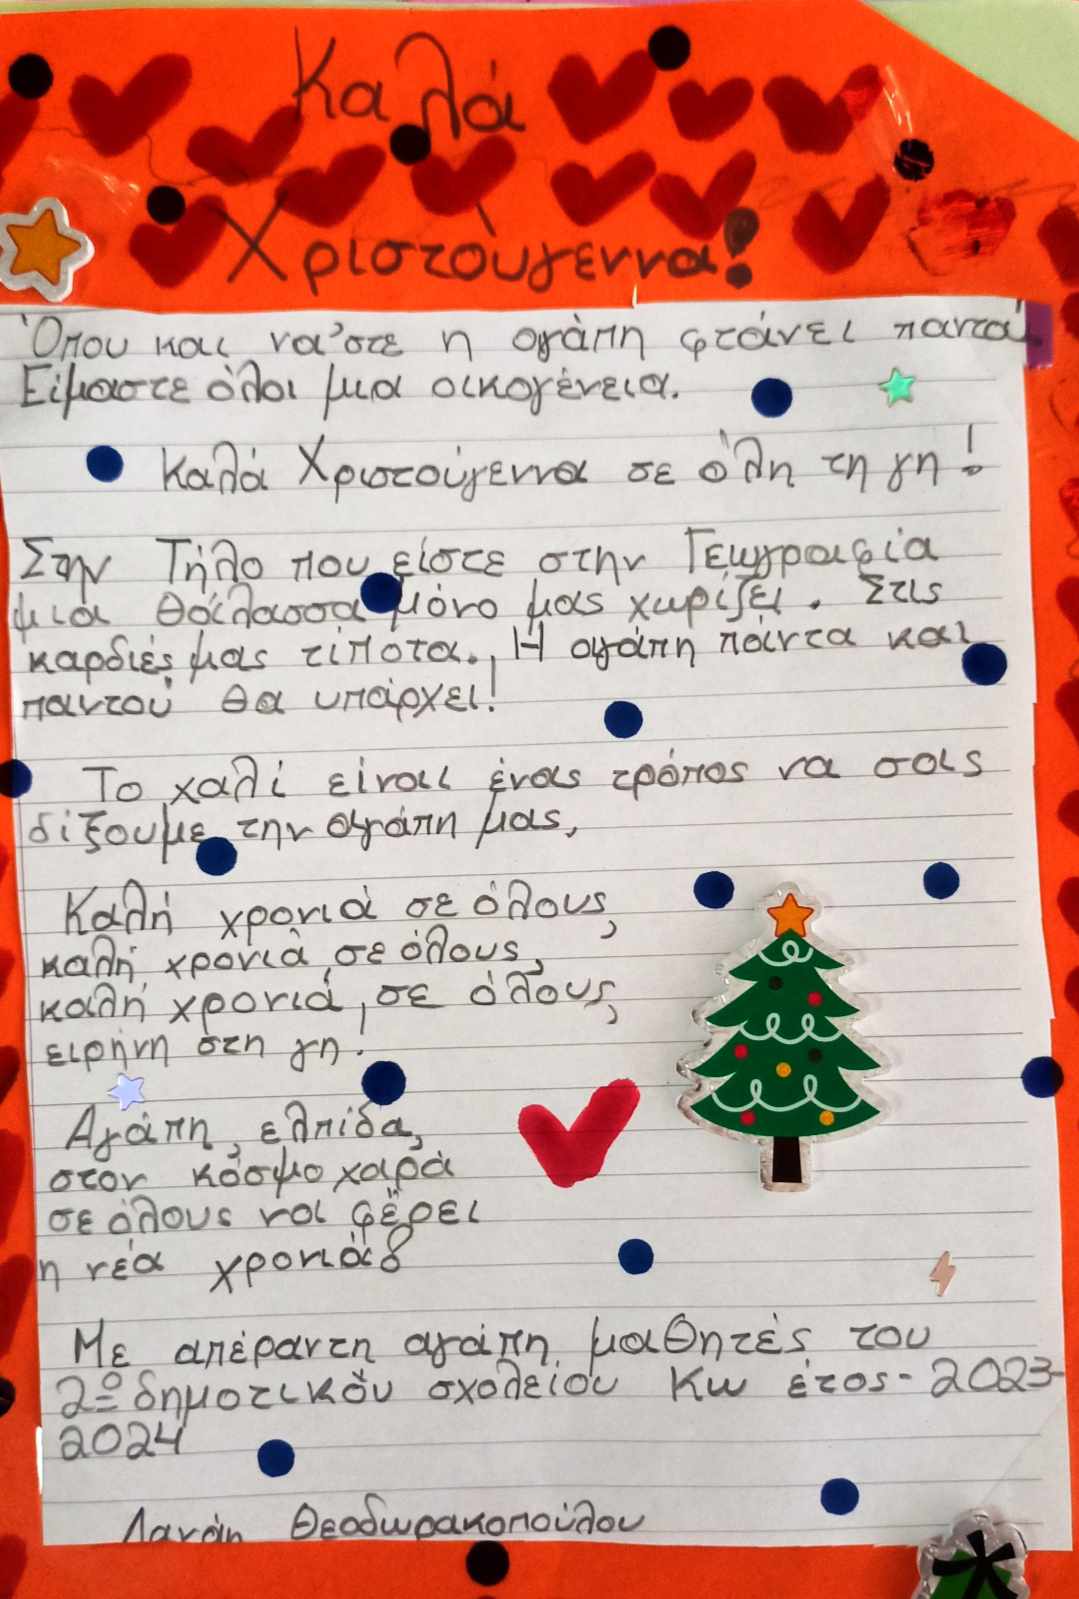 Καλά
Χριστούγεννα!
Όπου και να'στε η αγάπη φτάνει παντού
Είμαστε όλοι μια οικογένεια.
Καλά Χριστούγεννα σε όλη τη γη!
Στην Τήλο που είστε στην Γεωγραφία
μια θάλασσα μόνο μας χωρίζει. Στις
καρδιές μας τίποτα. Η αγάπη πάντα και
παντού θα υπάρχει!
Το χαλί είναι ένας τρόπος να σας
δίξουμε την αγάπη μας,
Καλή χρονιά σε όλους,
καλή χρονιά, σε όλους,
καλή χρονιά, σε όλους,
ειρήνη στη γη.
Αγάπη, ελπίδα,
στον κόσμο χαρά
σε όλους να φέρει
η νέα χρονιά
Με απέραντη αγάπη, μαθητές του
2ο δημοτικού σχολείου Κω έτος-2023-
2024
Δανάη Θεοδωρακοπούλου